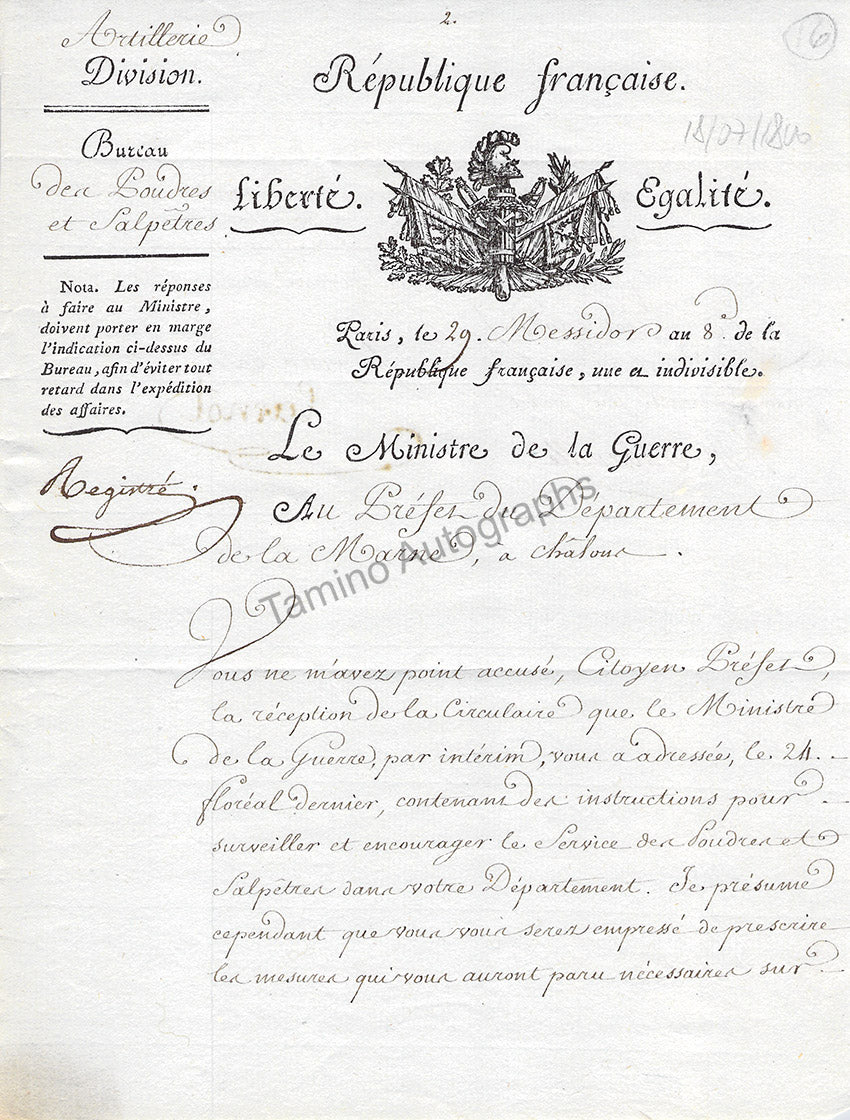 2.
16
Artillerie
Division.
République française.
18/07/1800
Bureau
des Poudres
et Salpêtres
Liberté.
Egalité.
Nota. Les réponses
à faire au Ministre,
doivent porter en marge
l'indication ci-dessus du
Bureau, afin d'éviter tout
retard dans l'expédition
des affaires.
Paris, le 29. Messidor an 8e. de la
République française, une et indivisible.
Carnot
Le Ministre de la Guerre,
Registré.
Au Préfet du Département
de la Marne, à Châlons.
Tamino Autographs
Vous ne m'avez point accusé, Citoyen Préfet,
la réception de la Circulaire que le Ministre
de la Guerre, par intérim, vous a adressée, le 24.
floréal dernier, contenant des instructions pour
surveiller et encourager le Service des Poudres et
Salpêtres dans votre Département. Je présume
cependant que vous vous serez empressé de prescrire
les mesures qui vous auront paru nécessaires sur